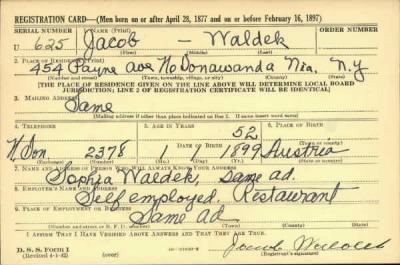 REGISTRATION CARD—(Men born on or after April 28, 1877 and on or before February 16, 1897)
SERIAL NUMBER 1. NAME (Print) ORDER NUMBER
U 625 Jacob — Waldek
2. PLACE OF RESIDENCE (Print)
454 Payne ave No Tonawanda Nia. N.Y
(Number and street) (Town, township, village, or city) (County) (State)
[THE PLACE OF RESIDENCE GIVEN ON THE LINE ABOVE WILL DETERMINE LOCAL BOARD
JURISDICTION; LINE 2 OF REGISTRATION CERTIFICATE WILL BE IDENTICAL]
3. MAILING ADDRESS
Same
[Mailing address if other than place indicated on line 2. If same insert word same]
4. TELEPHONE 5. AGE IN YEARS 6. PLACE OF BIRTH
52
DATE OF BIRTH
N Ton 2378 1 1 1899 Austria
(Exchange) (Number) (Mo.) (Day) (Yr.) (State or country)
7. NAME AND ADDRESS OF PERSON WHO WILL ALWAYS KNOW YOUR ADDRESS
Sophia Waldek, Same ad.
8. EMPLOYER'S NAME AND ADDRESS
Self employed. Restaurant
9. PLACE OF EMPLOYMENT OR BUSINESS
Same ad
(Number and street or R. F. D. number) (Town) (County) (State)
I AFFIRM THAT I HAVE VERIFIED ABOVE ANSWERS AND THAT THEY ARE TRUE.
D. S. S. Form 1
(Revised 4-1-42) (over)
Jacob Waldek
(Registrant's signature)